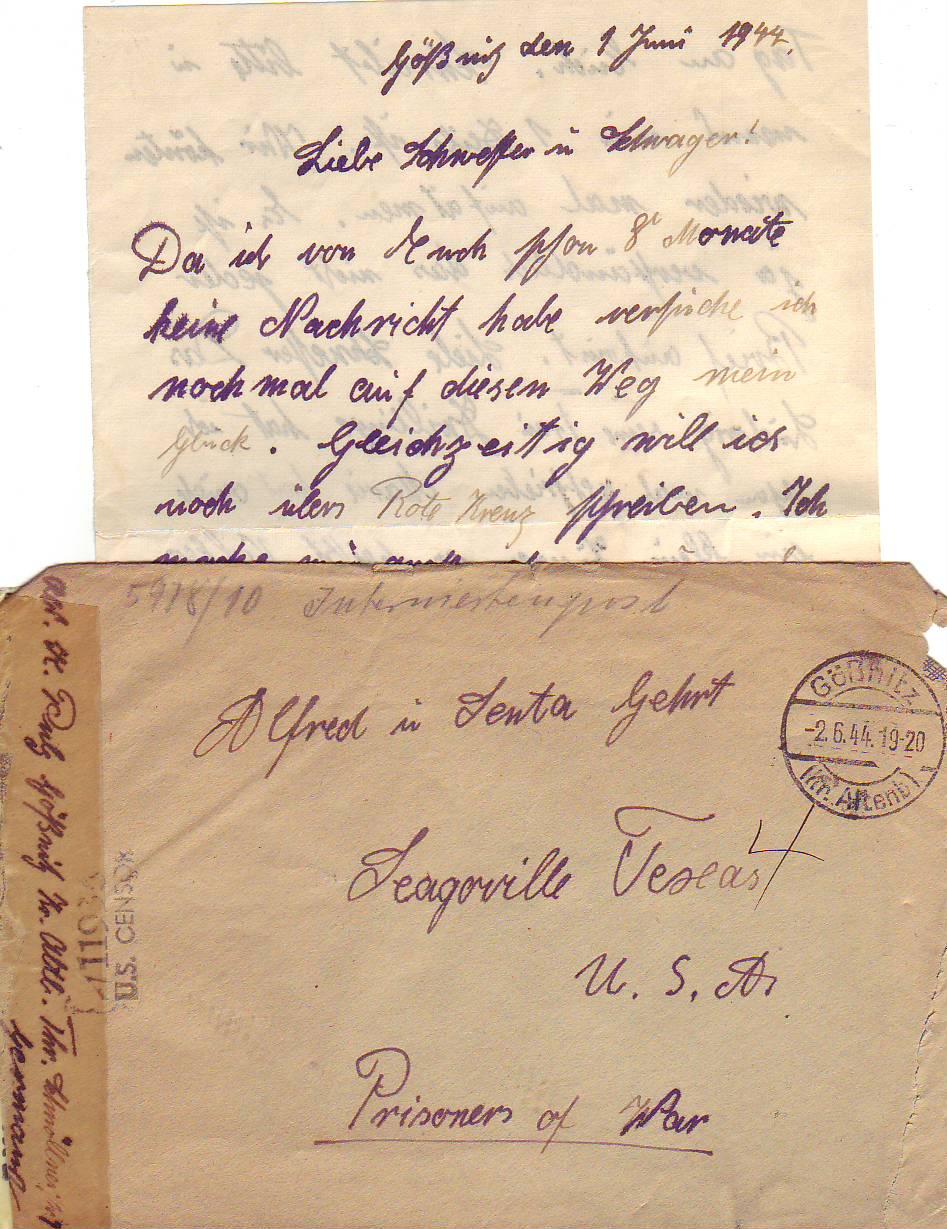 Gößnitz den 1 Juni 1944.
Liebe Schwester u Schwager!
Da ich von Euch schon 8 Monate
keine Nachricht habe versuche ich
nochmal auf diesen Weg mein
Glück. Gleichzeitig will ich
noch übers Rote Kreuz schreiben. Ich
5918/10 Interniertenpost
Alfred u Senta Gehrt
Seagoville Texeas
4
U. S. A.
Prisoners of War
Gößnitz
-2.6.44.19-20
(Kr. Altenb)
11034
U.S. CENSOR
Abs. K. Gößnitz Kr. Altb. Thr.
Germany